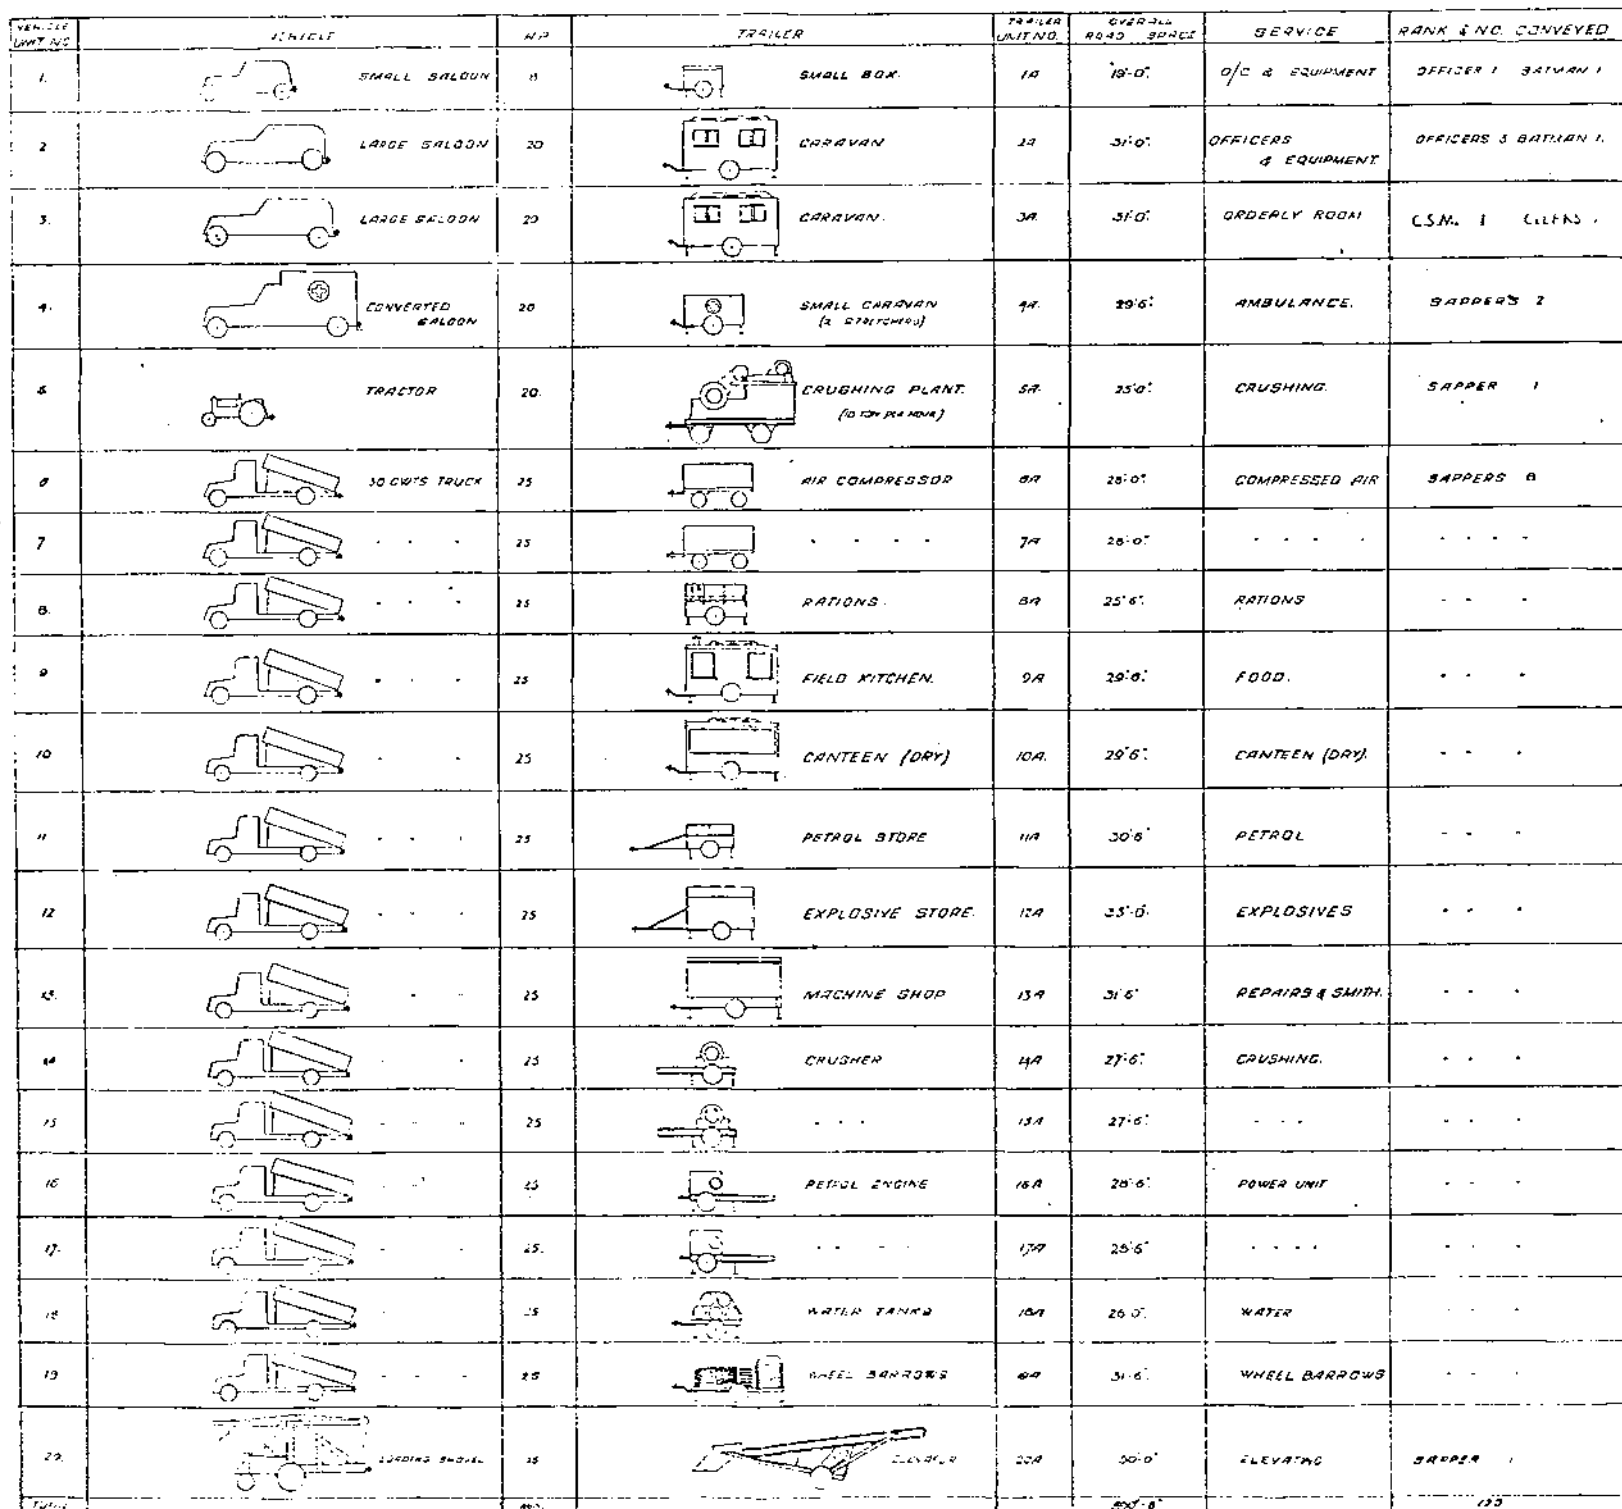 VEHICLE UNIT NO. VEHICLE H.P. TRAILER TRAILER UNIT NO. OVERALL ROAD SPACE SERVICE RANK & NO. CONVEYED
1. SMALL SALOON 8 SMALL BOX. 1A 19'-0" O/C & EQUIPMENT OFFICER 1 BATMAN 1
2 LARGE SALOON 20 CARAVAN 2A 31'-0" OFFICERS & EQUIPMENT OFFICERS 3 BATMAN 1.
3. LARGE SALOON 20 CARAVAN. 3A. 31'-0" ORDERLY ROOM C.S.M. 1
4. CONVERTED SALOON 20 SMALL CARAVAN (2 STRETCHERS) 4A. 29'6" AMBULANCE. SAPPERS 2
5 TRACTOR 20. CRUSHING PLANT. (10 TON PER HOUR) 5A. 25'0" CRUSHING. SAPPER 1
6 30 CWTS TRUCK 25 AIR COMPRESSOR 6A 28'-0" COMPRESSED AIR SAPPERS 8
7 " " " 25 " " " " 7A 28'-0" " " " " " " " "
8. " " " 25 RATIONS. 8A 25'6" RATIONS " " "
9 " " " 25 FIELD KITCHEN. 9A 29'6" FOOD. " " "
10 " " " 25 CANTEEN (DRY) 10A. 29'6" CANTEEN (DRY). " " "
11 " " " 25 PETROL STORE 11A 30'6" PETROL " " "
12 " " " 25 EXPLOSIVE STORE. 12A EXPLOSIVES " " "
13. " " 25 MACHINE SHOP 13A 31'6" REPAIRS & SMITH. " " "
14 " " 25 CRUSHER 14A 27'-6" CRUSHING. " " "
15 " " " 25 " " " 15A 27'-6" " " " " " "
16 " " 25 PETROL ENGINE 16A 28'-6" POWER UNIT " " "
17. " " 25. " " " " 17A 28'-6" " " " " " " "
18 " " 25 WATER TANKS 18A 26'0" WATER " " "
19 " " 25 WHEEL BARROWS 19A 31'-6" WHEEL BARROWS " " "
20. LOADING SHOVEL 25 ELEVATOR 20A ELEVATING SAPPER 1
TOTAL